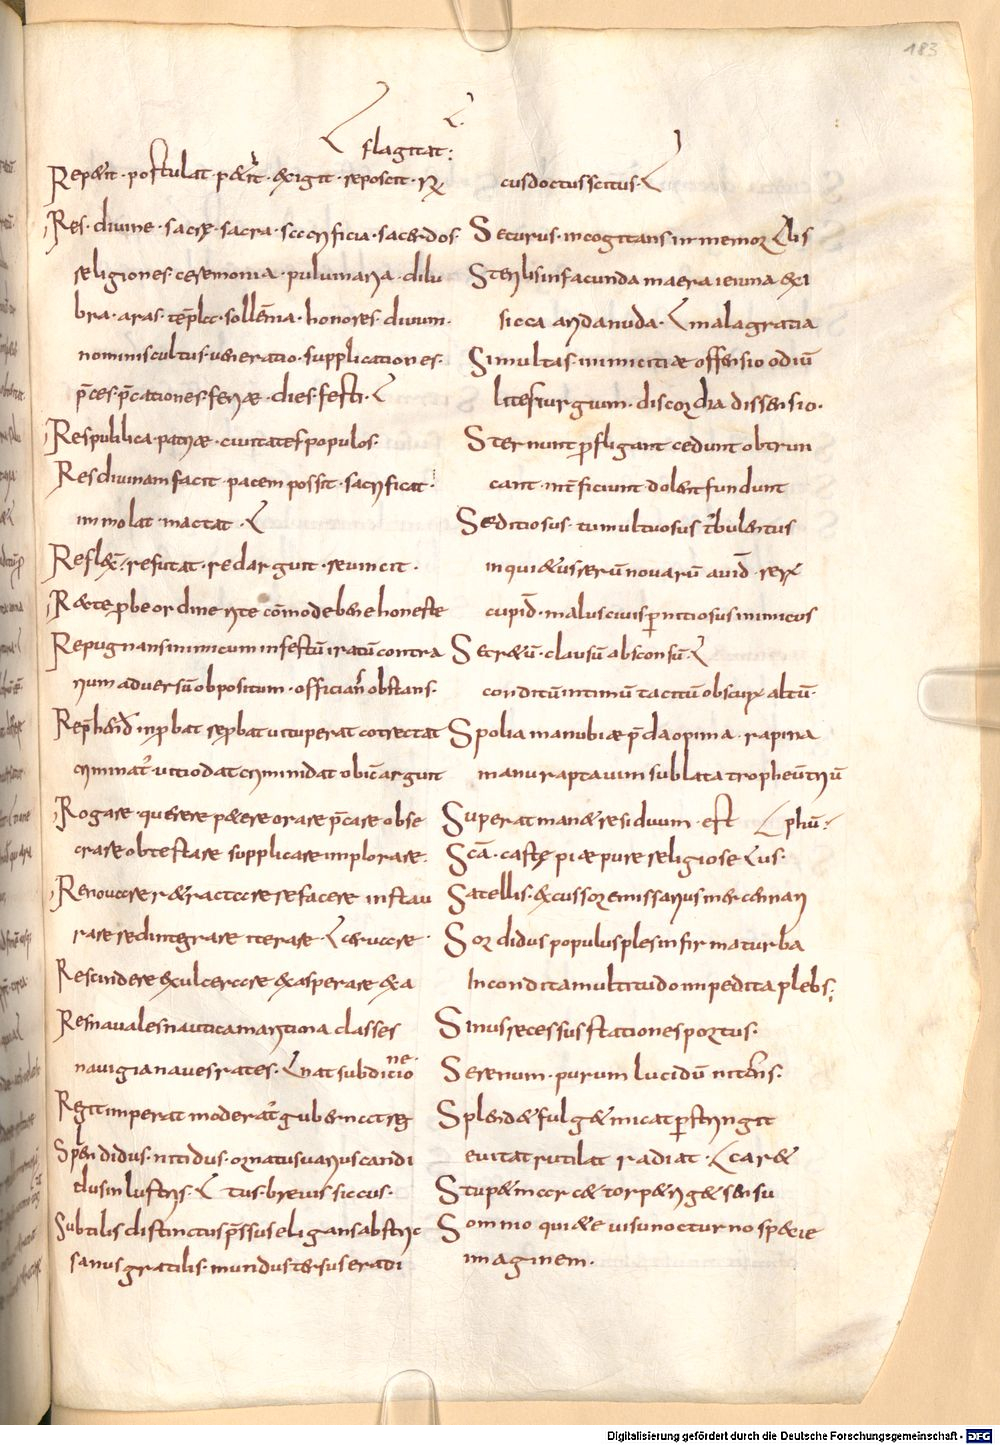 183
flagitat:
Rep&it · postulat · p&iť · exigit · reposcit · R
Res · diuine · sacre · sacra · sacrificia · sacerdos ·
religiones · ceremonia · puluinaria · dilu
bra · aras · tēpla · sollēnia · honores · diuum ·
nominis cultus · ueneratio · supplicationes ·
p̄ces · p̄cationes · feriae · dies · festi ·
Respublica · patriae · ciuitates populos ·
Res diuinam facit pacem possit · sacrificat ·
immolat · mactat ·
refutat · redarguit · reuincit ·
Repugnans inimicum infestū iratū contra
rium aduersū obpositum · obstans ·
uituperat
criminať · uitio dat crimini dat obic̄ arguit
Rogare · querere p&ere orare p̄care obse
crare obtestare supplicare implorare ·
refacere instau
rare redintegrare iterare ·
Rescindere exulcerare exasperare exa
Res nauales nautica maritima classes
nauigia naues rates · nat subditio
ne ·
Regit imperat moderať gubernat reg
Splendidus · nitidus · ornatus uarius candi
dus inlustris · tus · breuis siccus ·
Subtilis distinctus p̄ssus eligans abstric
sanus gratilis · mundus tersus eradi
cus doctus scitus ·
Securus · incogitans inmemor bis
Sterilis infacunda macra ieiuna exi
sicca arida nuda · mala gratia
Simultas · inimicitiae offensio odiū
lites iurgium · discordia dissensio ·
Sternunt p̄fligant cedunt obtrun
cant · int̄ficiunt dolent fundunt
Seditiosus · tumultuosus turbulentus
inqui&us rerū nouarū auid̄ · rerr
cupid̄ · malus ciuis pernitiosus inimicus
Secr&ū · clausū absconsū ·
conditū intimū tacitū obscurū altū ·
Spolia manubiae p̄da opima · rapina
manu rapta uim sublata tropheū triū
Superat man& residuum · est phū:
Scā · caste piae pure religiose us ·
Satellis · excussor emissarius mercennari
Sordidus populus ples infirma turba
Incondita multitudo impedita plebs;
Sinus recessus stationes portus ·
Serenum · purum lucidū nitens ·
Splend& fulg& micat perstringit
euitat rutilat radiat · car&
Stup& torp& rig& sensu
Somnio qui&e uisu nocturno specie
imaginem ·
Digitalisierung gefördert durch die Deutsche Forschungsgemeinschaft - DFG